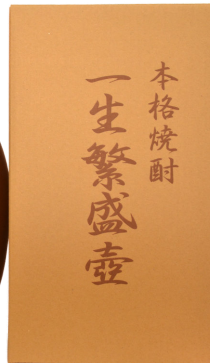 本格焼酎
一生繁盛壺